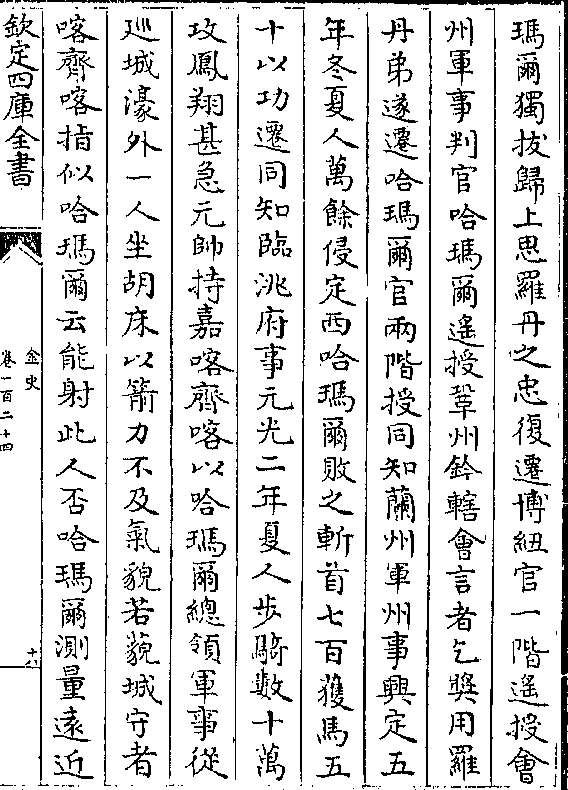 瑪爾獨拔歸上思羅丹之忠復遷博紐官一階遙授會
州軍事判官哈瑪爾遙授鞏州鈐轄會言者乞奬用羅
丹弟遂遷哈瑪爾官兩階授同知蘭州軍州事興定五
年冬夏人萬餘侵定西哈瑪爾敗之斬首七百獲馬五
十以功遷同知臨洮府事元光二年夏人步騎數十萬
攻鳳翔甚急元帥持嘉喀齊喀以哈瑪爾總領軍事從
巡城濠外一人坐胡床以箭力不及氣貌若藐城守者
喀齊喀指似哈瑪爾云能射此人否哈瑪爾測量遠近
欽定四庫全書
金史
卷一百二十四
十八